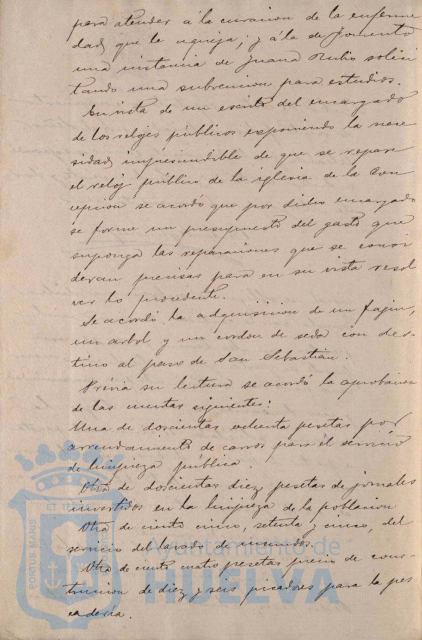 para atender á la curacion de la enferme
dad, que le aqueja; y á la de Fomento
una instancia de Juana Rubio solici
tando una subvencion para estudios.
En vista de un escrito del encargado
de los relojes públicos exponiendo la nece
sidad imprescindible de que se repare
el reloj público de la iglesia de la Con
cepcion se acordó que por dicho encargado
se forme un presupuesto del gasto que
suponga las reparaciones que se consi
deran precisas para en su vista resol
ver lo procedente.
Se acordó la adquisicion de un fajin,
un arbol y un cordon de seda con des-
tino al paso de San Sebastian.
Prévia su lectura se acordó la aprobacion
de las cuentas siguientes:
Una de doscientas ochenta pesetas por
arrendamiento de carros para el servicio
de limpieza pública.
Otra de doscientas diez pesetas de jornales
invertidos en la limpieza de la poblacion
Otra de ciento cinco, setenta y cinco, del
servicio del lavado de
Otra de ciento cuatro pesetas precio de cons-
truccion de diez y seis picadores para la pes
cadería.
PORTUS MARIS ET TE
Ayuntamiento de
HUELVA